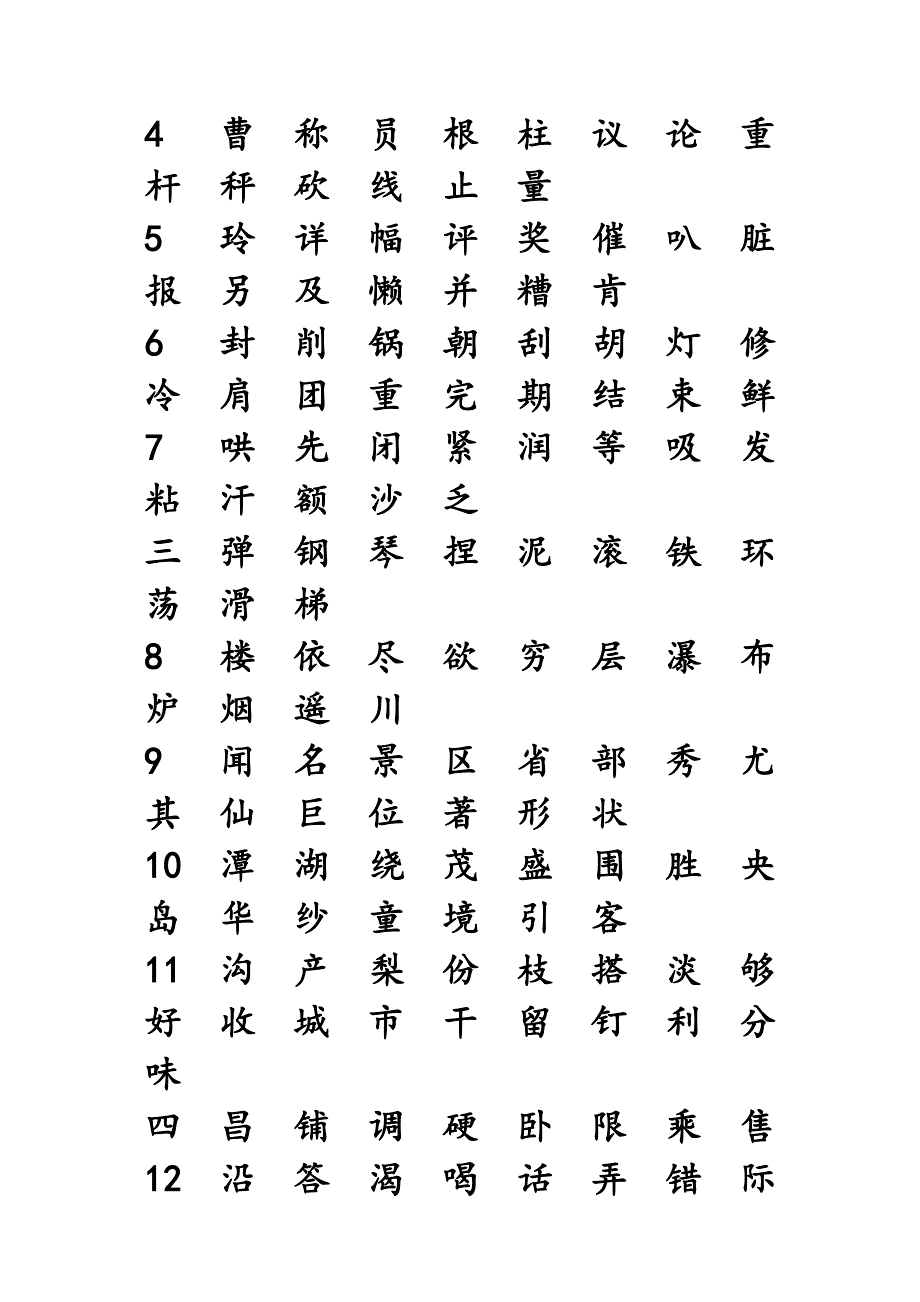 4 曹 称 员 根 柱 议 论 重
杆 秤 砍 线 止 量
5 玲 详 幅 评 奖 催 叭 脏
报 另 及 懒 并 糟 肯
6 封 削 锅 朝 刮 胡 灯 修
冷 肩 团 重 完 期 结 束 鲜
7 哄 先 闭 紧 润 等 吸 发
粘 汗 额 沙 乏
三 弹 钢 琴 捏 泥 滚 铁 环
荡 滑 梯
8 楼 依 尽 欲 穷 层 瀑 布
炉 烟 遥 川
9 闻 名 景 区 省 部 秀 尤
其 仙 巨 位 著 形 状
10 潭 湖 绕 茂 盛 围 胜 央
岛 华 纱 童 境 引 客
11 沟 产 梨 份 枝 搭 淡 够
好 收 城 市 干 留 钉 利 分
味
四 昌 铺 调 硬 卧 限 乘 售
12 沿 答 渴 喝 话 弄 错 际